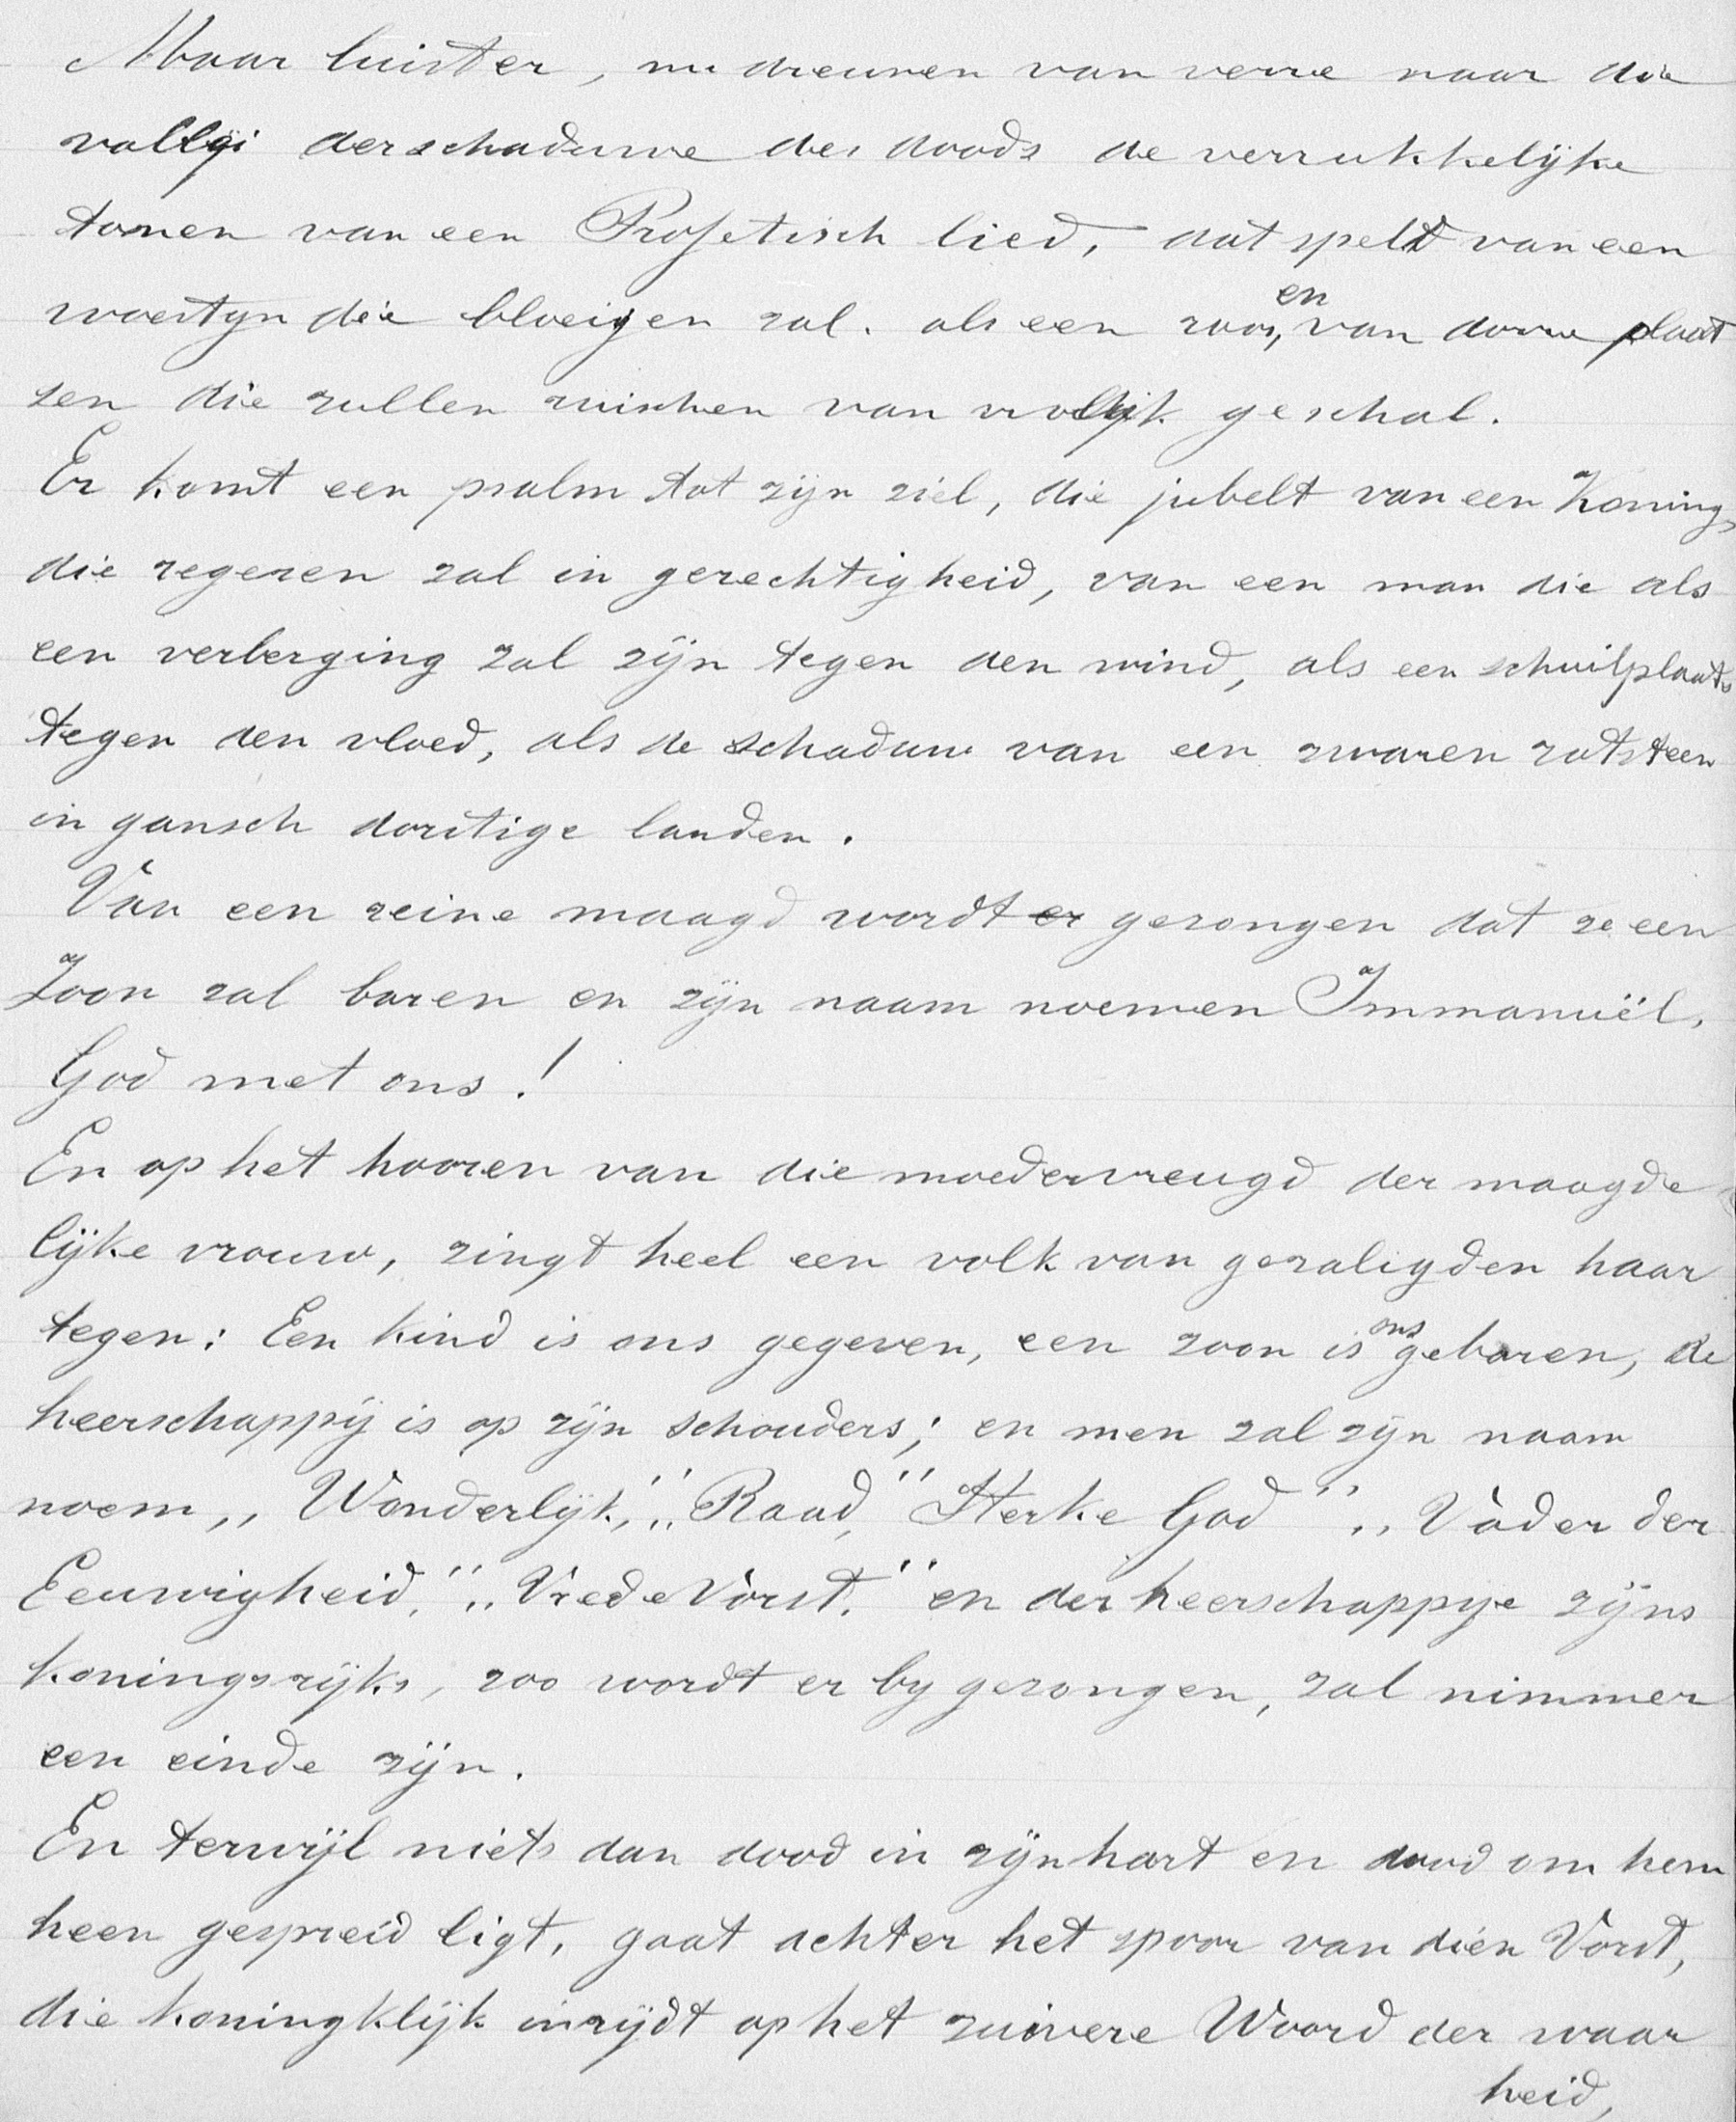 Maar luister, nu dreunen van verre naar die
vallei der schaduwe des doods de verrukkelijke
tonen van een Profetisch lied, dat spelt van een
woestyn die bloeijen zal. als een roos, en van dorre plaat
sen die zullen ruischen van vrolijk geschal.
Er komt een psalm tot zijn ziel, die jubelt van een Koning,
die regeren zal in gerechtigheid, van een man die als
een verberging zal zijn tegen den wind, als een schuilplaats
tegen den vloed, als de schaduw van een zwaren rotsteen
in gansch dorstige landen.
Van een reine maagd wordt er gezongen dat ze een
Zoon zal baren en zijn naam noemen Immanuël,
God met ons!
En op het hooren van die moedervreugd der maagde
lijke vrouw, zingt heel een volk van gezaligden haar
tegen: Een kind is ons gegeven, een zoon is ons geboren, de
heerschappij is op zijn schouders; en men zal zijn naam
noem „Wonderlijk," „Raad," Sterke God" „Vader der
Eeuwigheid," „VredeVorst." en der heerschappye zijns
koningsrijks, zoo wordt er by gezongen, zal nimmer
een einde zijn.
En terwijl niets dan dood in zijn hart en dood om hem
heen gespreid ligt, gaat achter het spoor van dien Vorst,
die koningklijk inrijdt op het zuivere Woord der waar
heid,